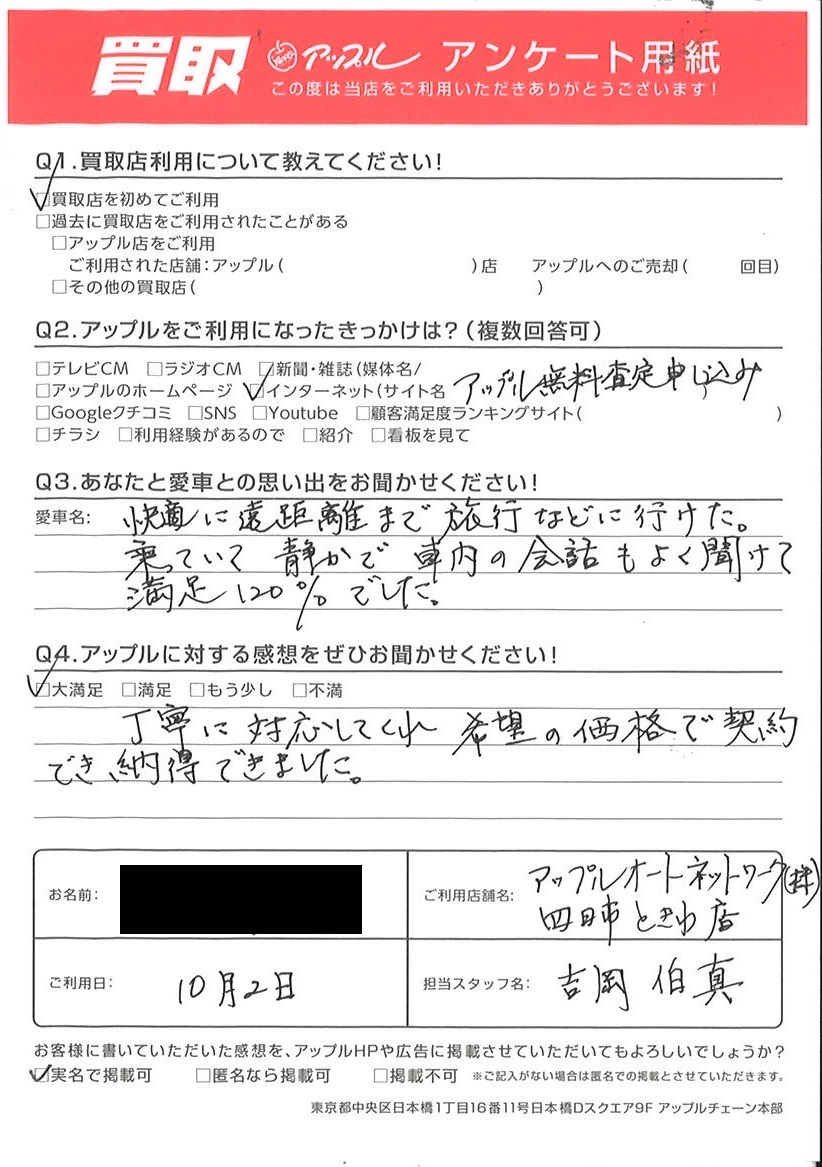 買取 アップル アンケート用紙
この度は当店をご利用いただきありがとうございます！
Q1.買取店利用について教えてください！
☑買取店を初めてご利用
□過去に買取店をご利用されたことがある
□アップル店をご利用
ご利用された店舗：アップル（ ）店 アップルへのご売却（ 回目）
□その他の買取店（ ）
Q2.アップルをご利用になったきっかけは？（複数回答可）
□テレビCM □ラジオCM □新聞・雑誌（媒体名/
□アップルのホームページ ☑インターネット（サイト名 アップル無料査定申し込み ）
□Googleクチコミ □SNS □Youtube □顧客満足度ランキングサイト（ ）
□チラシ □利用経験があるので □紹介 □看板を見て
Q3.あなたと愛車との思い出をお聞かせください！
愛車名： 快適に遠距離まで旅行などに行けた。
乗っていて静かで車内の会話もよく聞けて
満足120％でした。
Q4.アップルに対する感想をぜひお聞かせください！
☑大満足 □満足 □もう少し □不満
丁寧に対応してくれ希望の価格で契約
でき納得できました。
お名前：
ご利用店舗名： アップルオートネットワーク(株)
四日市ときわ店
ご利用日： 10月2日
担当スタッフ名： 吉岡 伯真
お客様に書いていただいた感想を、アップルHPや広告に掲載させていただいてもよろしいでしょうか？
☑実名で掲載可 □匿名なら掲載可 □掲載不可 ※ご記入がない場合は匿名での掲載とさせていただきます。
東京都中央区日本橋1丁目16番11号日本橋Dスクエア9F アップルチェーン本部